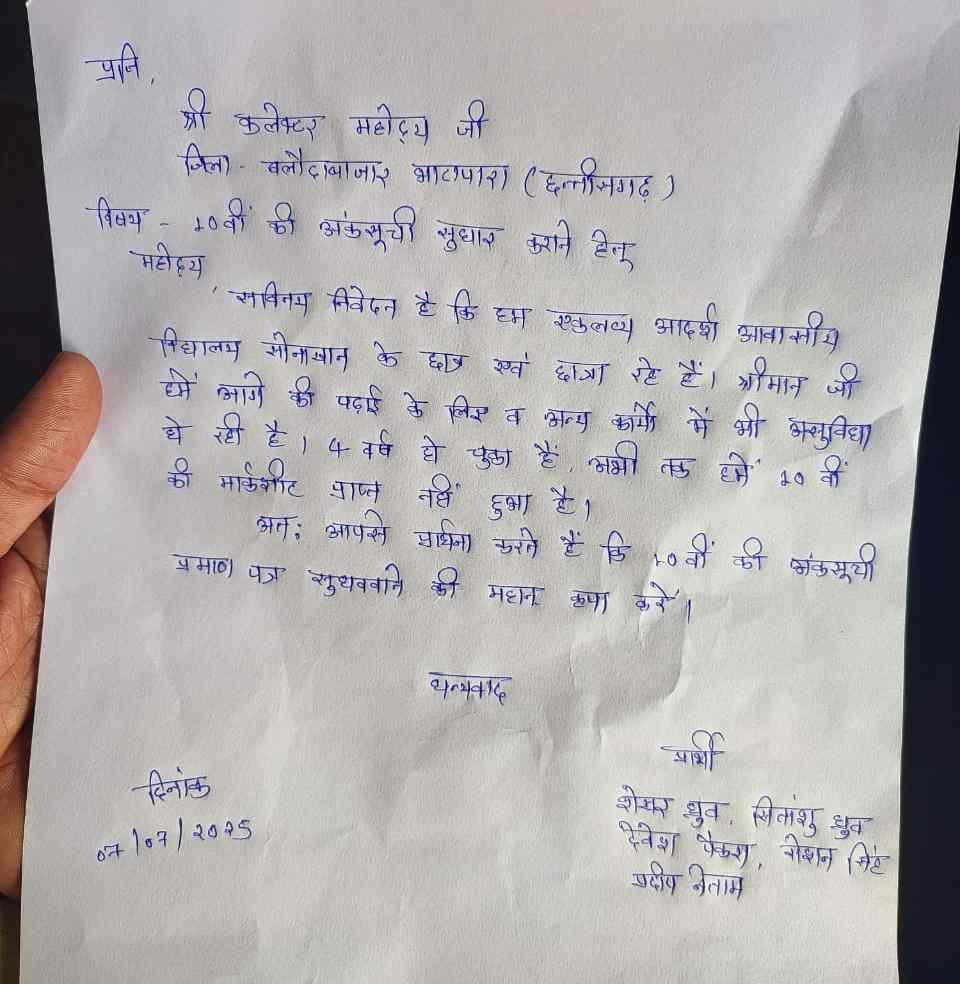 प्रति,
श्री कलेक्टर महोदय जी
जिला - बलौदाबाजार भाटापारा (छत्तीसगढ़)
विषय - 10वीं की अंकसूची सुधार कराने हेतू
महोदय,
सविनय निवेदन है कि हम एकलव्य आदर्श आवासीय
विद्यालय सोनाखान के छात्र एवं छात्रा रहे हैं। श्रीमान जी
हमें आगे की पढ़ाई के लिए व अन्य कार्यो में भी असुविधा
हो रही है। 4 वर्ष हो चुका हैं, अभी तक हमें 10 वीं
की मार्कशीट प्राप्त नहीं हुआ है।
अतः आपसे प्रार्थना करते हैं कि 10वीं की अंकसूची
प्रमाण पत्र सुधरवाने की महान् कृपा करें।
धन्यवाद
प्रार्थी
दिनांक
07/07/2025
शेखर ध्रुव, सितांशु ध्रुव
देवेश पैकरा, रोशन सिंह
प्रदीप नेताम